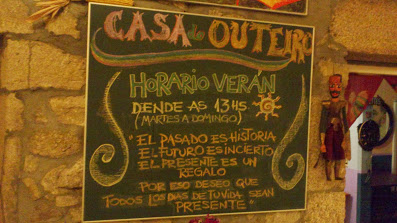 CASA do OUTEIRO
HORARIO VERÁN
DENDE AS 13HS.
(MARTES A DOMINGO)
"EL PASADO ES HISTORIA
EL FUTURO ES INCIERTO
EL PRESENTE ES UN
REGALO
POR ESO DESEO QUE
TODOS LOS DIAS DE TU VIDA SEAN
PRESENTE"